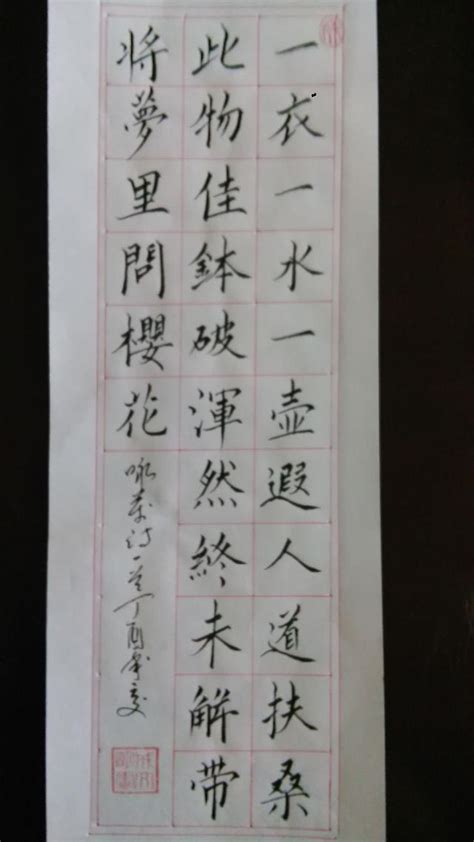 一衣一水一壶遐人道扶桑
此物佳鉢破渾然終未解带
将夢里問櫻花
咏茶诗一首丁酉